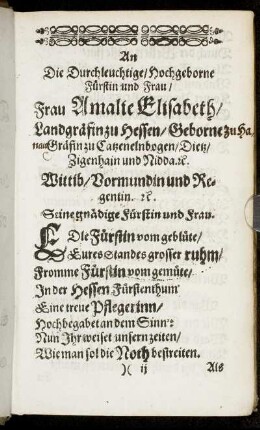 An
Die Durchleuchtige/Hochgeborne
Fürstin und Frau/
Frau Amalie Elisabeth/
Landgräfin zu Hessen/Geborne zu Ha,
nau Gräfin zu Catzenelnbogen/Dietz/
Zigenhain und Nidda.ꝛc.
Wittib/Vormundin und Re-
gentin. ꝛc.
Seine gnädige Fürstin und Frau.
EDle Fürstin vom geblüte/
Eures Standes grosser ruhm/
Fromme Fürstin vom gemüte/
In der Hessen Fürstenthum
Eine treue Pflegerinn/
Hochbegabet an dem Sinn:
Nun Ihr weiset unsern zeiten/
Wie man sol die Noth bestreiten.
)( ij
Als